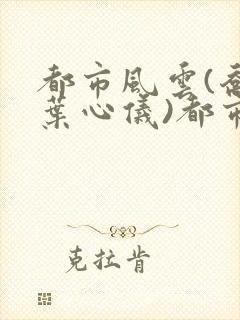 都市風雲(喬
葉心儀)都市
克拉肯